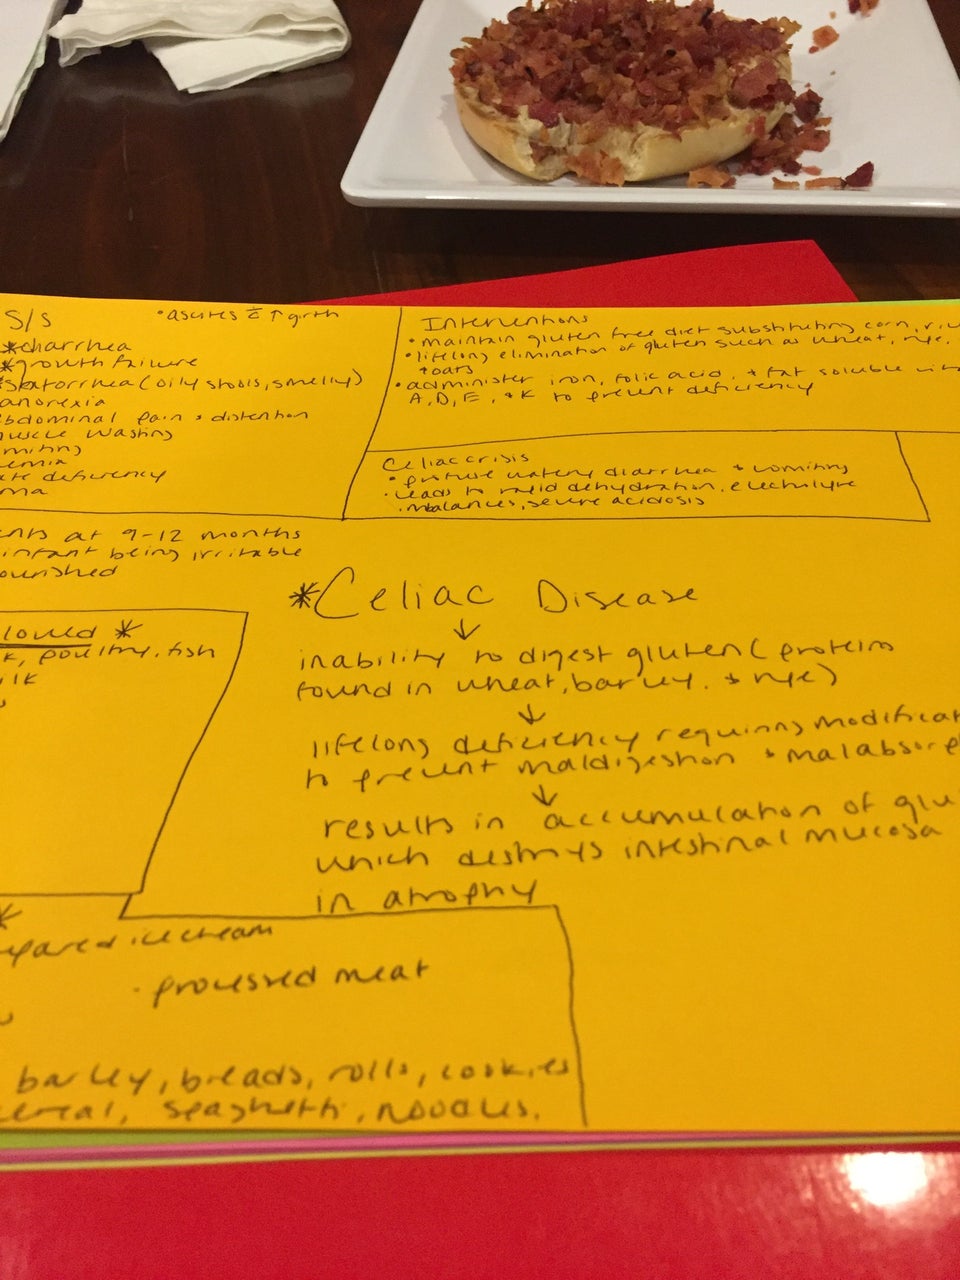 S/S
• ascites c̄ ↑ girth
*diarrhea
*growth failure
*steatorrhea (oily stools, smelly)
anorexia
bdominal pain + distention
uscle wasting
miting
emia
ate deficiency
ma
Interventions
• maintain gluten free diet substituting corn, ric
• lifelong elimination of gluten such as wheat, rye,
+ oats
• administer iron, folic acid, + fat soluble vit
A, D, E, + K to prevent deficiency
Celiac crisis
• profuse watery diarrhea + vomiting
• leads to rapid dehydration, electrolyte
imbalances, severe acidosis
ents at 9-12 months
infant being irritable
ourished
*Celiac Disease
↓
inability to digest gluten (proteins
found in wheat, barley, + rye)
↓
lifelong deficiency requiring modificat
to prevent maldigestion + malabsorp
↓
results in accumulation of glu
which destroys intestinal mucosa
in atrophy
lowed *
k, poultry, fish
ilk
epared ice cream
• processed meat
barley, breads, rolls, cookies
cereal, spaghetti, noodles.